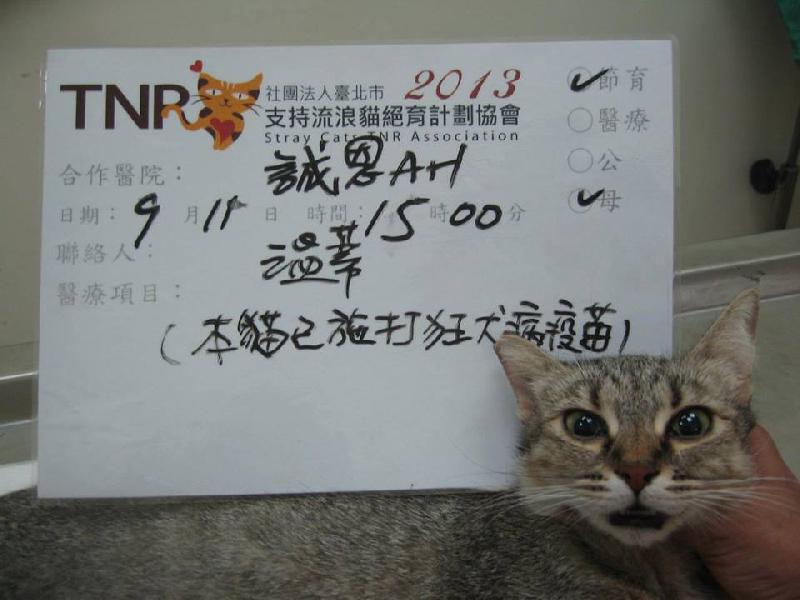 TNR 社團法人臺北市 2013
支持流浪貓絕育計劃協會
Stray Cats TNR Association
✓節育
○醫療
○公
✓母
合作醫院：誠恩AH
日期：9月11日 時間：15時00分
聯絡人：溫蒂
醫療項目：
（本貓已施打狂犬病疫苗）